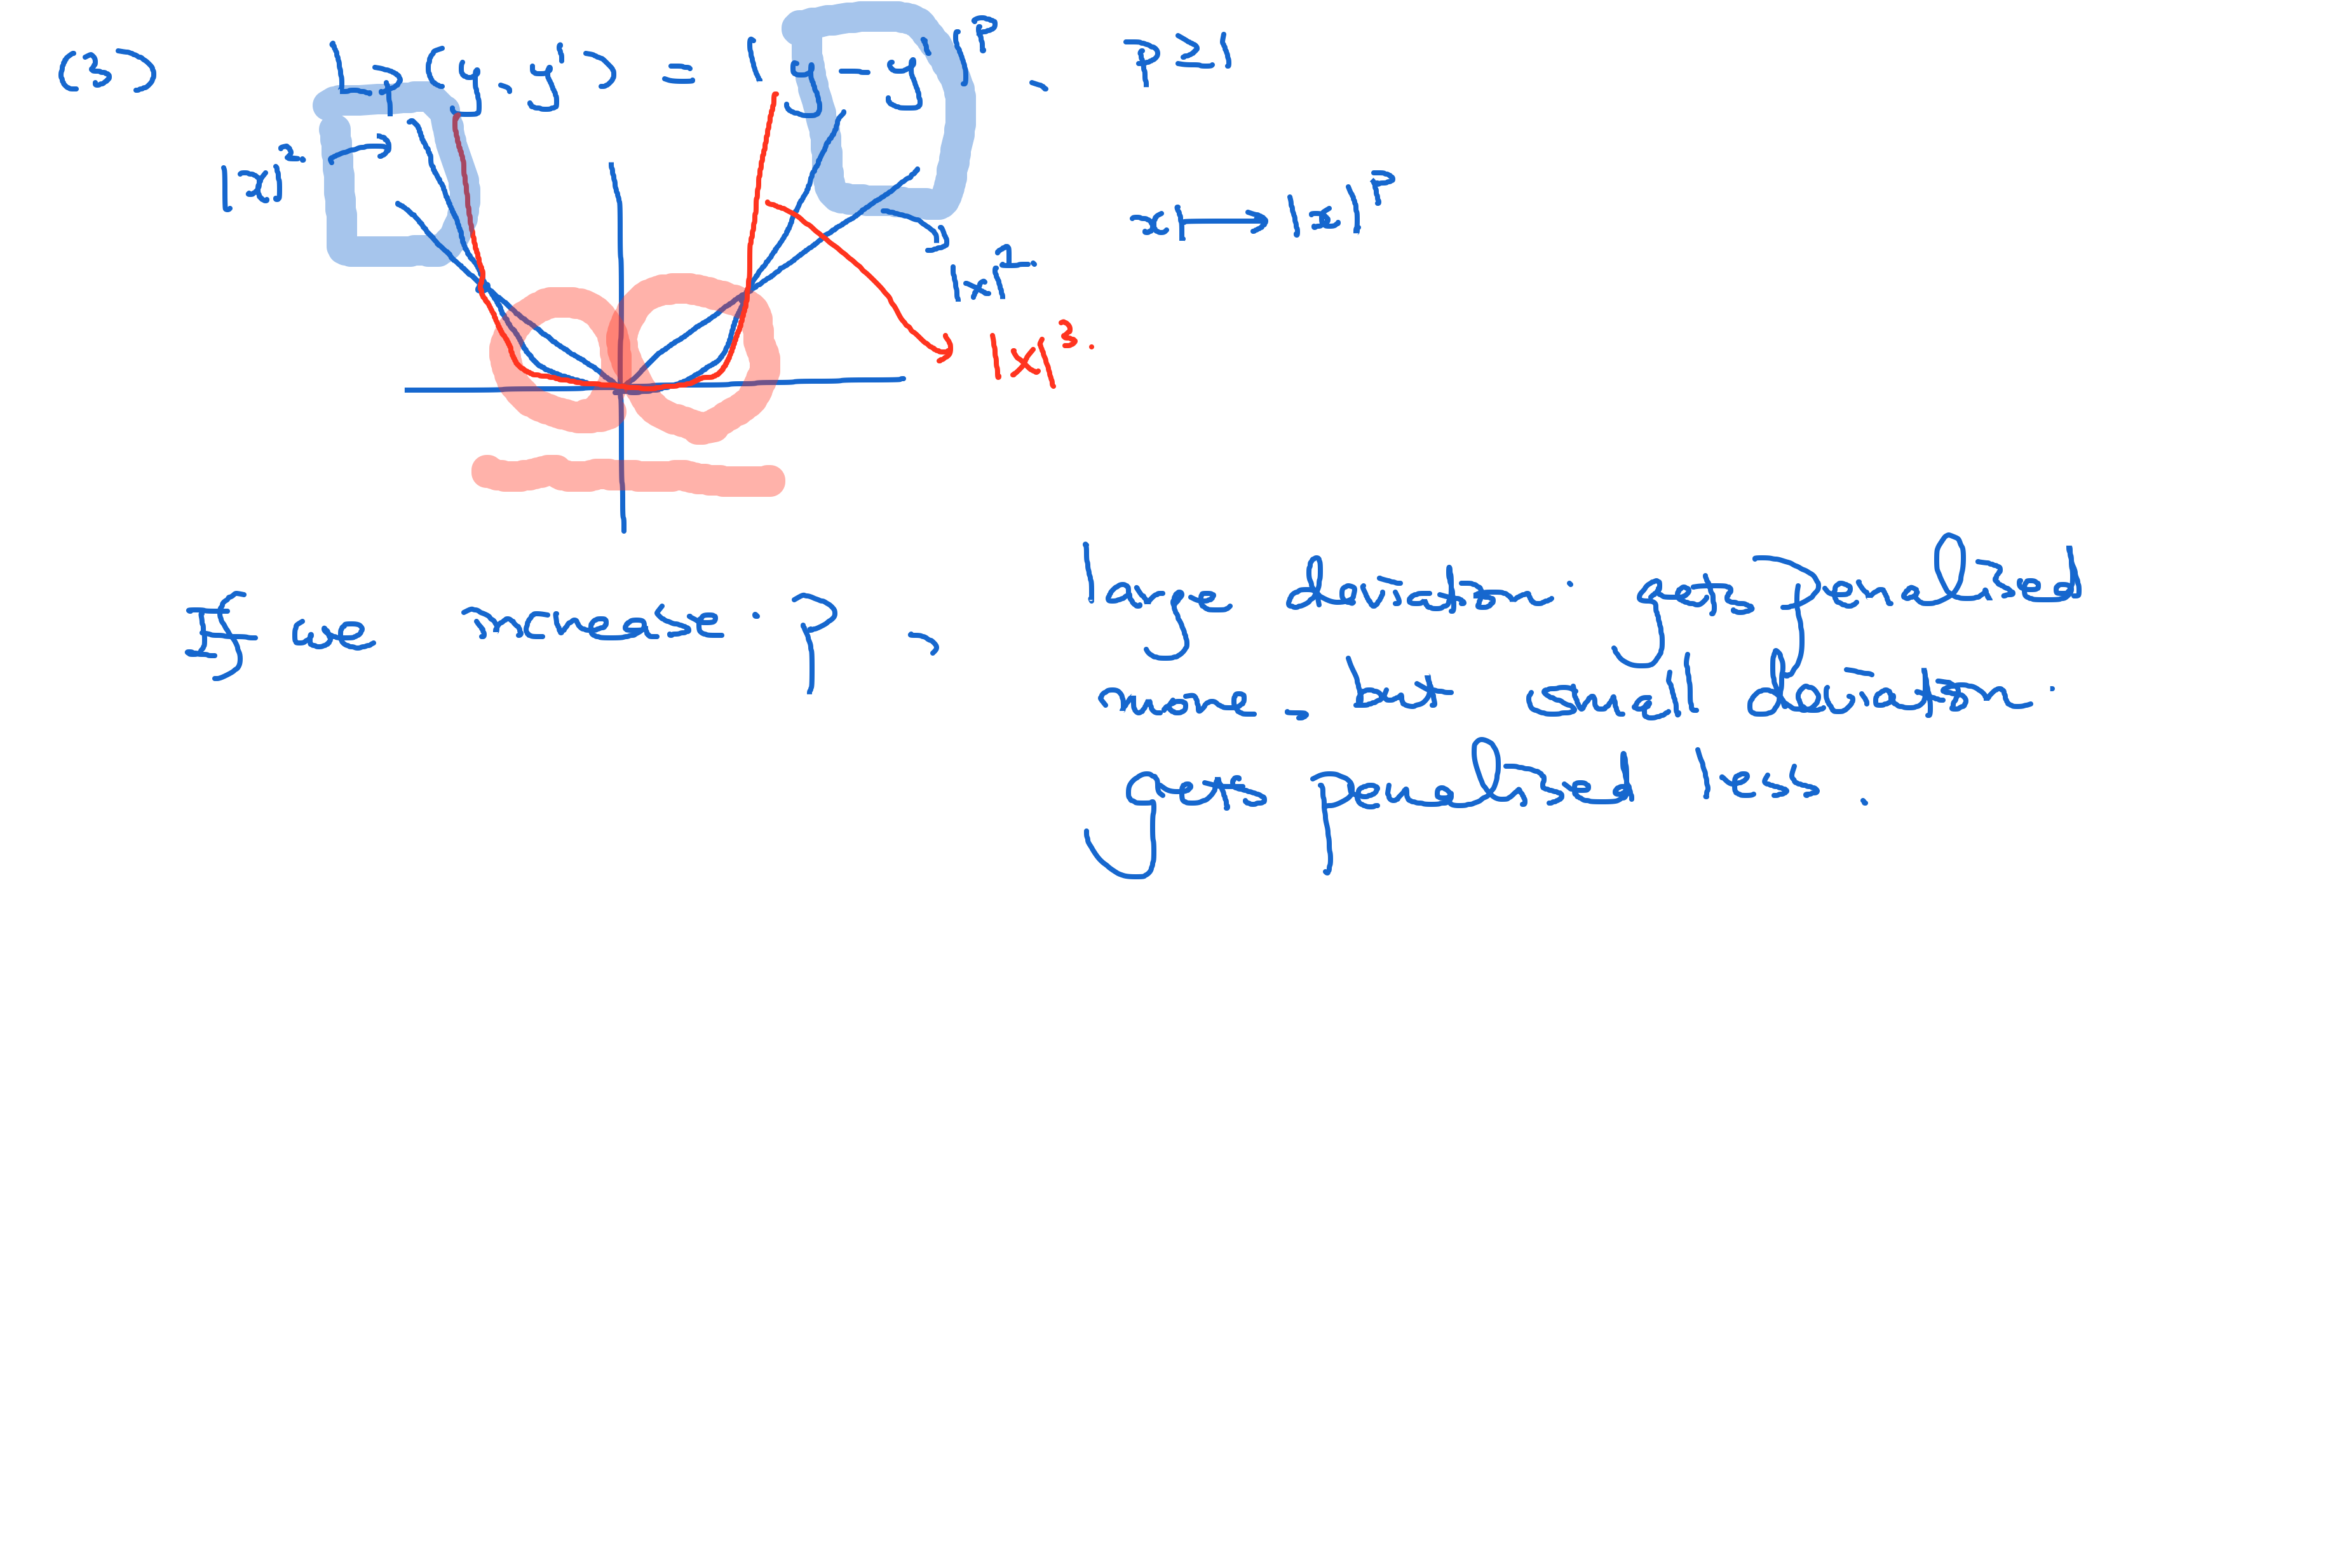 (3) L_p(y, y') = |y - y'|^p. p ≥ 1
|x|^2.
x ↦ |x|^p
|x|^1.
|x|^3.
If we increase p,
large deviation gets penalized
more, but small deviation
gets penalized less.